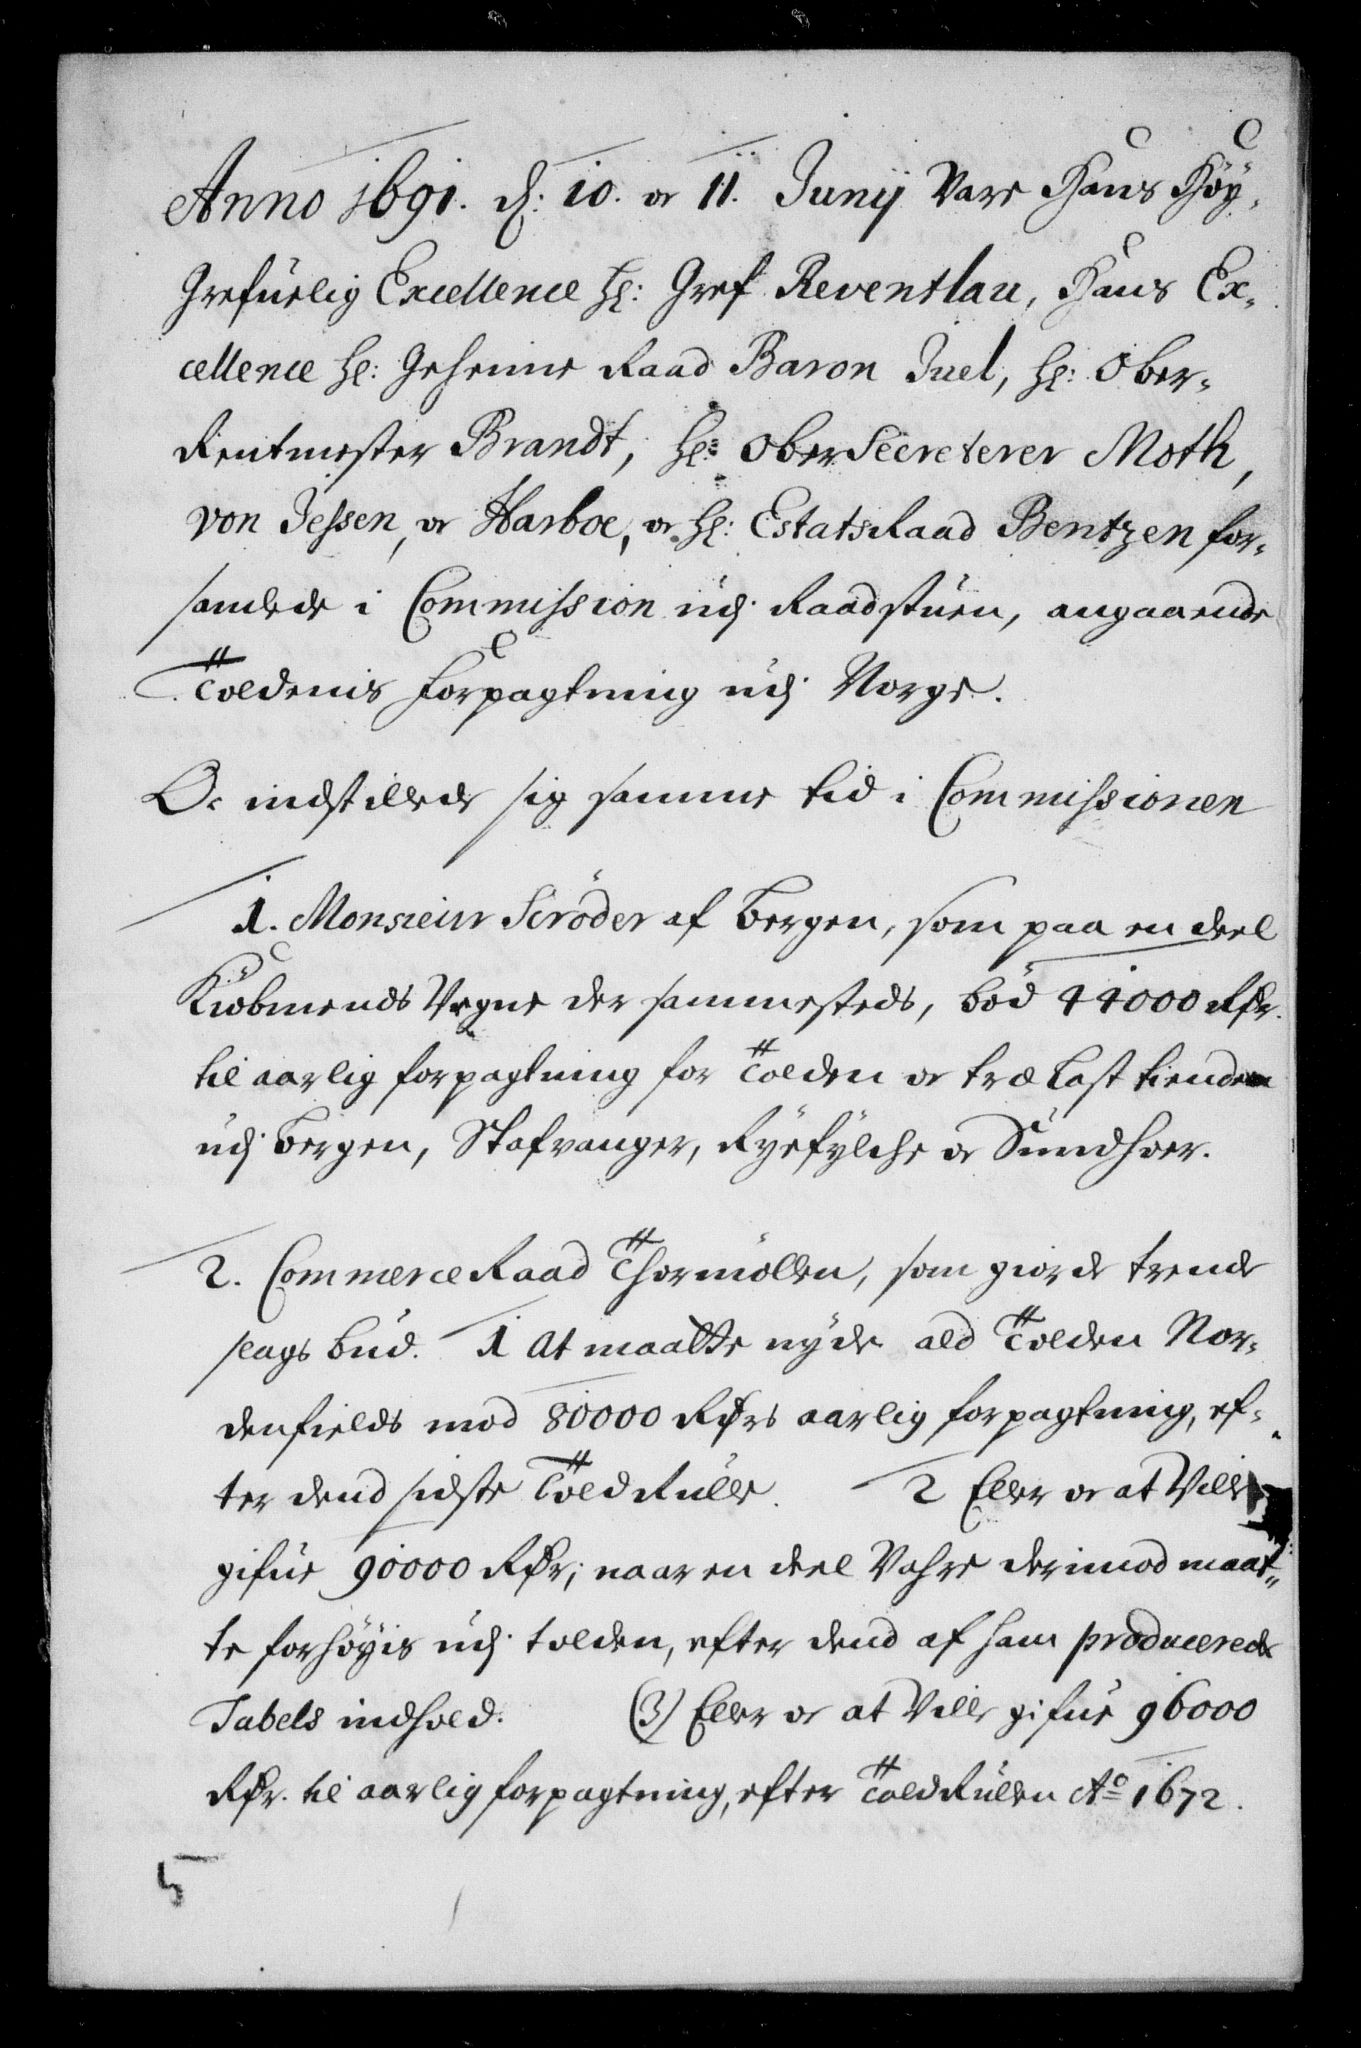 Anno 1691. d: 10. oc 11. Junij Vare Hans Høy-
Grefuelig Excellence Hl: Gref Reventlau, Hans Ex-
cellence Hl: Geheime Raad Baron Juel, Hl: Ober-
Rentmester Brandt, Hl: Ober Secreterer Moth,
von Jessen, oc Harboe, oc Hl: Estats Raad Bentzen for-
samlede i Commission udj Raadstuen, angaaende
Toldenis forpagtning udj Norge.
Oc indstillede sig samme tid i Commissionen
1. Monsieur Scrøder af Bergen, som paa en deel
Kiøbmends Vegne der sammesteds, bød 44000 Rdr.
til aarlig forpagtning for Tolden oc træ Last tienden
udj Bergen, Stafvanger, Ryefylche oc Sundhoer.
2. Commerce Raad Thormølen, som giorde trende
slags bud. 1 At maatte nyde ald Tolden Nor-
denfields mod 80000 Rdrs aarlig forpagtning, ef-
ter dend sidste Told Rulle. 2 Eller oc at Ville
gifue 90000 Rdr; naar en deel Vahre derimod maat-
te forhøyis udj tolden, efter dend af ham producerede
Tabels indhold. (3) Eller oc at Ville gifue 96000
Rdr. til aarlig forpagtning, efter Told Rullen Ao 1672.
5